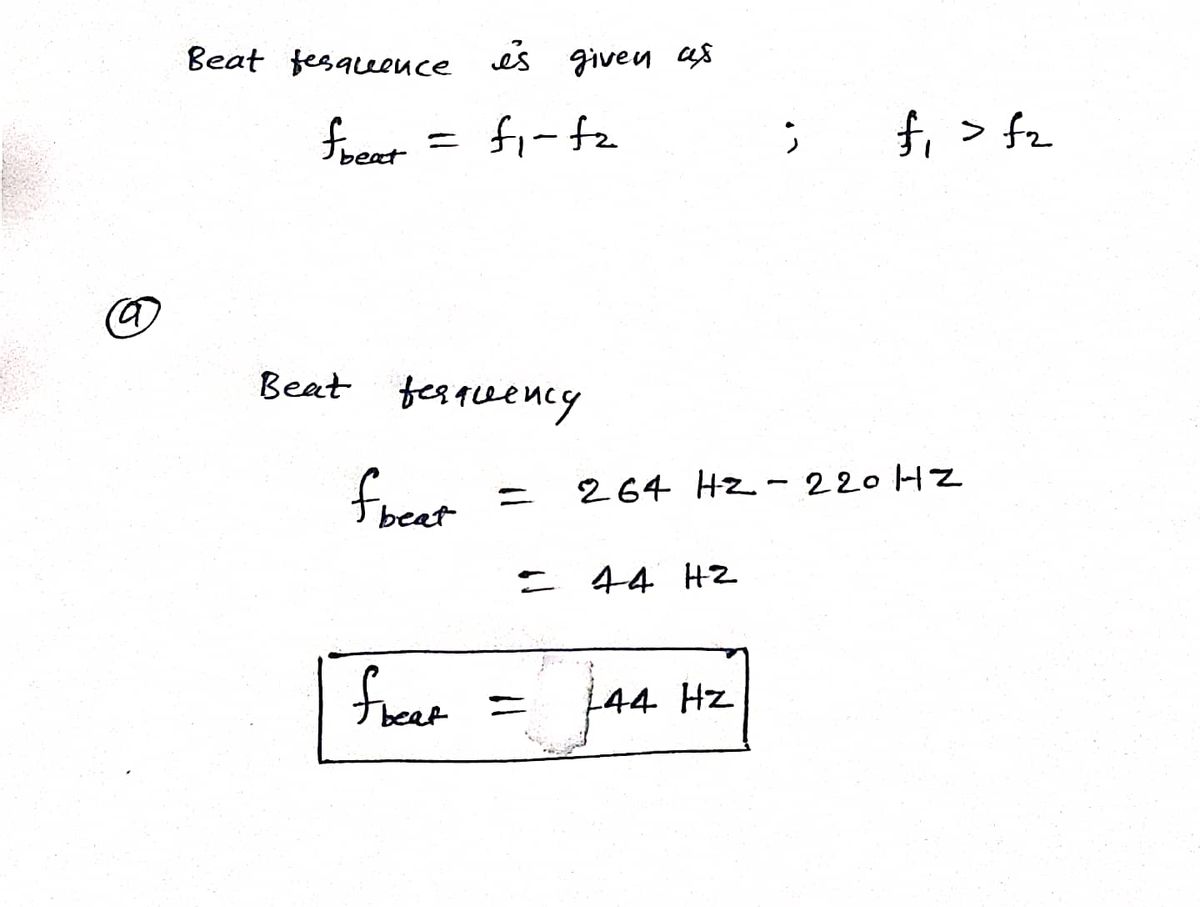 Beat fesquence is given as
fbeat = f1 - f2 ; f1 > f2
a
Beat ferquency
fbeat = 264 Hz - 220 Hz
= 44 Hz
fbeat = 44 Hz